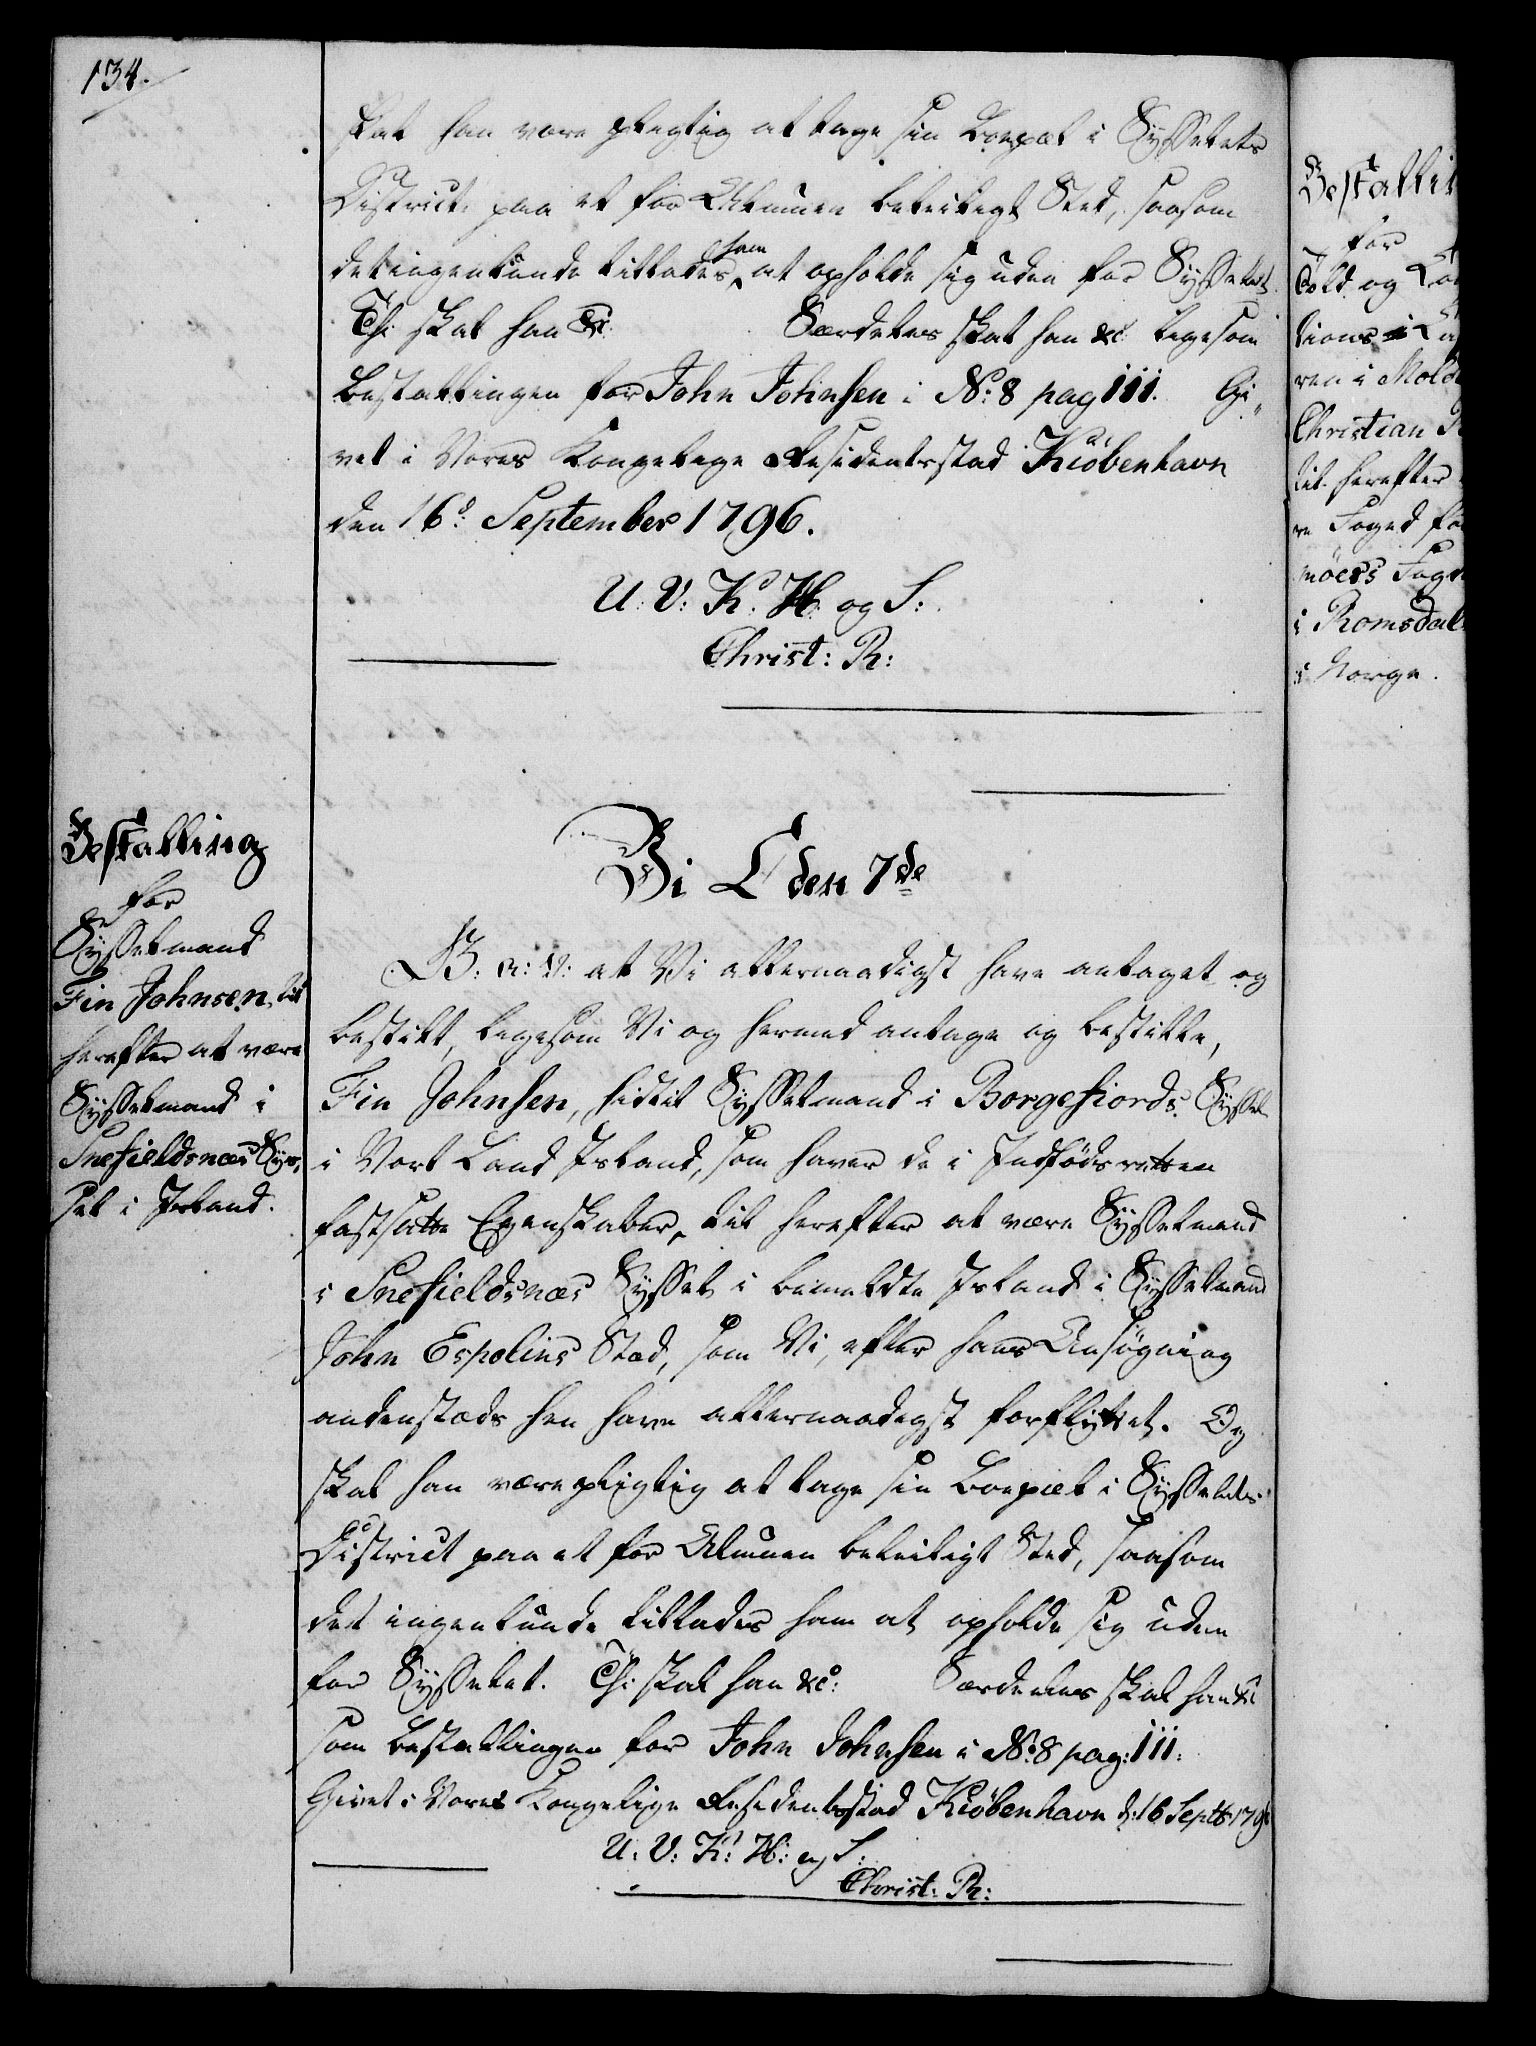 134.
skal han være pligtig at tage sin Boepæl i Sysselets
District paa et for Almuen beleiligt Sted, saasom
det ingenlunde tillades ham at opholde sig uden for Sysselet.
Thi skal han &c. Særdeles skal han &c. ligesom
Bestallingen for John Johnsen i No: 8 pag 111. Gi„
vet i Vores Kongelige Residentsstad Kiøbenhavn
den 16d. September 1796.
U: V: K: H: og S:
Christ: R:
Bestalling
for
Sysselmand
Fin Johnsen, til
herefter at være
Sysselmand i
Snefieldsnæs Sys„
sel i Island.
Vi C den 7de
G: A: V: at Vi allernaadigst have antaget og
bestilt, ligesom Vi og hermed antage og bestille,
Fin Johnsen, hidtil Sysselmand i Borgefiords Syssel
i Vort Land Island, som haver de i Indfødsretten
fastsatte Egenskaber, til herefter at være Sysselmand
i Snefieldsnæs Syssel i bemeldte Island i Sysselmand
John Espolins Sted, som Vi, efter hans Ansøgning
andenstæds hen have allernaadigst forflyttet. Og
skal han være pligtig at tage sin Boepæl i Sysselets
District paa et for Almuen beleiligt Sted, saasom
det ingenlunde tillades ham at opholde sig uden
for Sysselet. Thi skal han &c: Særdeles skal han &c
som Bestallingen for John Johnsen i No: 8 pag: 111.
Givet i Vores Kongelige Residentsstad Kiøbenhavn d: 16 Septbr 1796
U: V: K: H: og S:
Christ: R:
Bestallin
for
Told og
tions
ren i Molde
Christian
til herefter
re Foged for
møers Fogd
i Romsdal
i Norge.